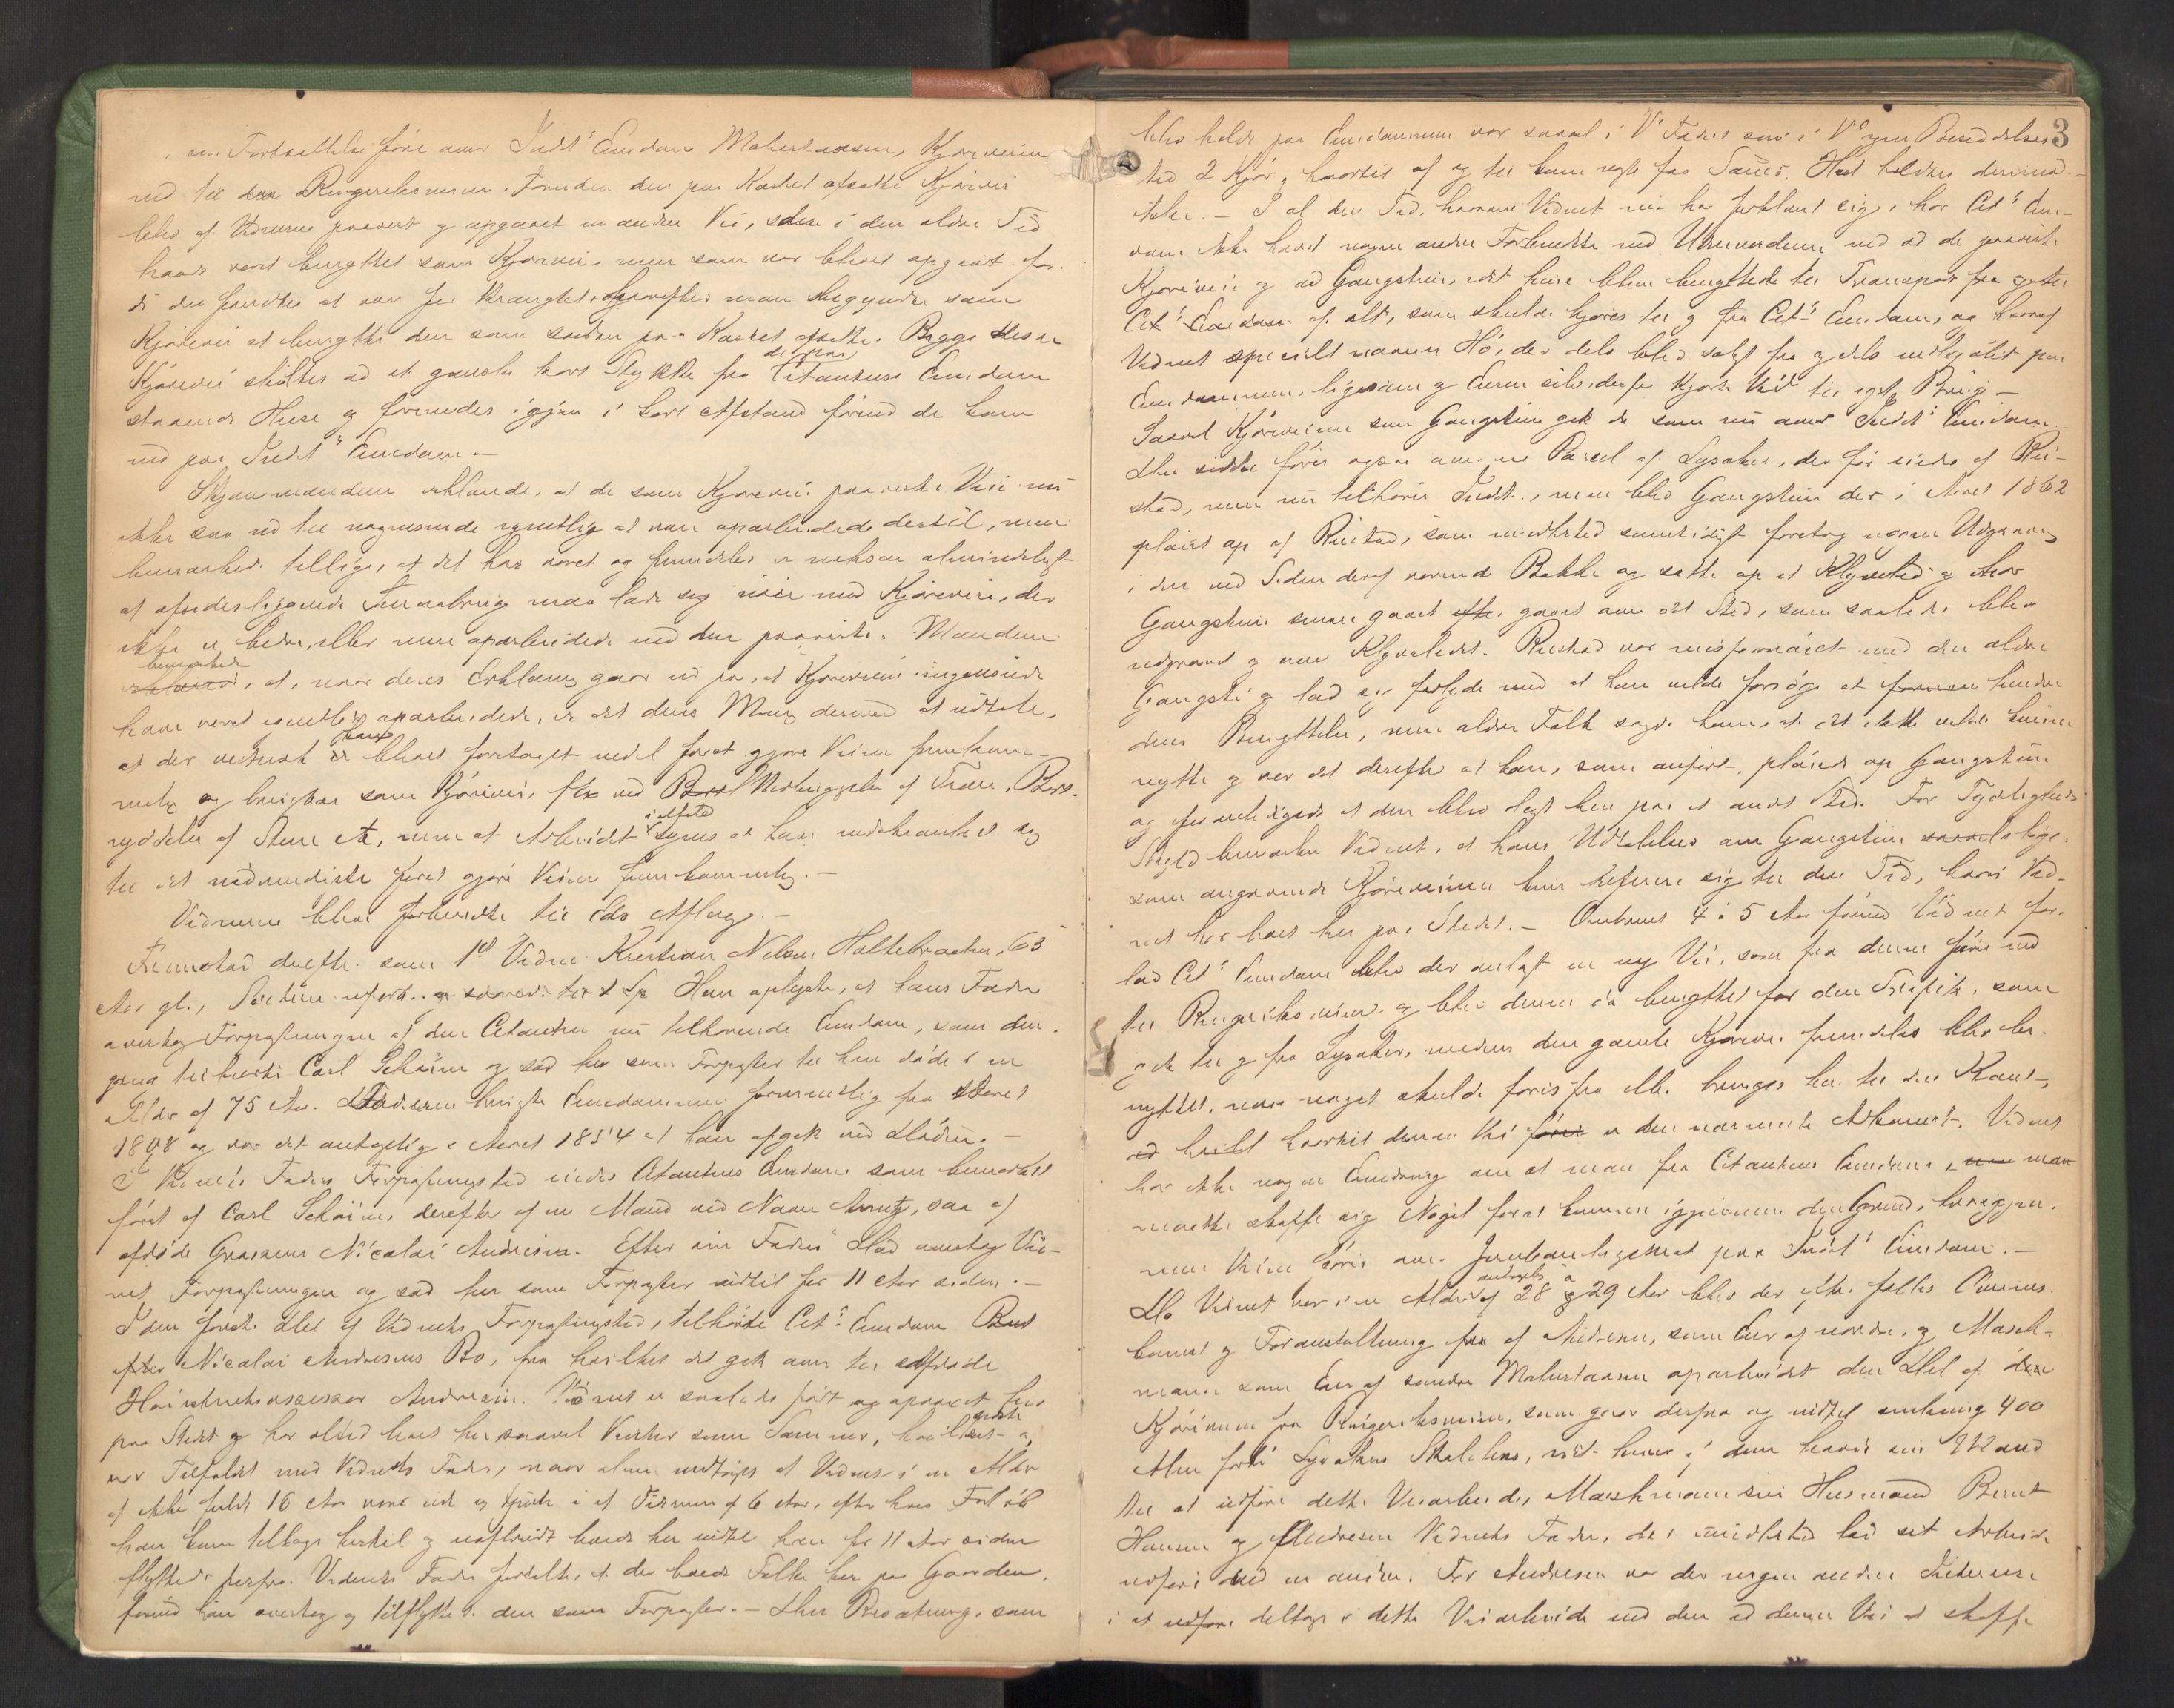 en Fortsættelse føre over Indst's Eiendom Mabestuesen, Kjøreveien
ned til den Ringeriksveien. Foruden den paa Kartet afsatte Kjørevei
blev af Vidnerne paavist og opgaaet en anden Vei, som i den ældre Tid
havde været benyttet som Kjørevei, men som var blevet opgivet, for-
di den fandtes at være for, hvorefter man begyndte som
Kjørevei at benytte den som saadan paa Kartet afsatte. Begge disse
Kjøreveie skiltes ad et ganske kort Stykke fra de paa Citantens Eiendom
staaende Huse og forenedes igjen i kort Afstand førend de kom
ned paa Indst's Eiendom.—
Skjønsmændene erklærede, at de som Kjørevei paaviste Veie nu
ikke saa ud til nogensinde egentlig at være oparbeidede dertil, men
bemærkede tillige, at det har været og fremdeles er noksaa almindeligt
at afsidesliggende Smaabrug maa lade sig nøie med Kjøreveie, der
ikke er bedre, eller mere oparbeidede end den paaviste. Mændene
bemærkede, at, naar deres Erklæring gaar ud paa, at Kjøreveien ingensinde
have været egentlig oparbeidede, er det deres Mening dermed at udtale,
at der vistnok kan blevet foretaget endel for at gjøre Veien fremkom-
melig og brugbar som Kjørevei, f. Ex. ved Nedhuggelse af Træer, Bort-
ryddelse af Stene etc, men at Arbeidet ialfald synes at have indskrænket sig
til det nødvendigste for at gjøre Veien fremkommelig.—
Vidnerne blev forberedte til Eds Aflæg.—
Fremstod derefter som 1ste Vidne Kristian Nilsen Holtebraaten, 63
Aar gl., Han oplyste, at hans Fader
overtog Forpagtningen af den Citanten nu tilhørende Eiendom, som den-
gang tilhørte Carl Schøien og sad her som Forpagter til han døde i en
Alder af 75 Aar. Faderen brugte Eiendommen formentlig fra Aaret
1808 og var det antagelig i Aaret 1854 at han afgik ved Døden.—
I Vidnets Faders Forpagtningstid eiedes Citantens Eiendom som bemærket
først af Carl Schøien, derefter af en Mand ved Navn, saa af
afdøde Grosserer Nicolai Andresen. Efter sin Faders Død overtog Vid-
net Forpagtningen og sad her som Forpagter indtil for 11 Aar siden.—
I den første Del af Vidnets Forpagtningstid, tilhørte Cit's Eiendom
efter Nicolai Andresens Bo, fra hvilket det gik over til afdøde
Høiesteretsassessor Andresen. Vidnet er saaledes født og opvoxet her
paa Stedet og har altid boet her saavel Vinter som Sommer, hvilket og
var Tilfældet med Vidnets Fader, naar alene undtages at Vidnet i en Alder
af ikke fuldt 16 Aar var ude og tjente i et Tidsrum af 6 Aar, efter hvis Forløb
han kom tilbage hertil og uafbrudt boede her indtil han for 11 Aar siden
flyttede herfra. Vidnets Fader fortalte, at der boede Folk her paa Gaarden,
førend han overtog og tilflyttede den som Forpagter.— Den Besætning, som
3
blev holdt paa Eiendommen var saavel i V's Faders som i V's egen Besiddelses
tid 2 Kjør, hvortil af og til kom nogle faa Sauer. Hest holdtes derimod
ikke.— I al den Tid, hvorom Vidnet nu har forklaret sig, har Cit's Eien-
dom ikke havt nogen anden Forbindelse med Udenverdenen end ad de paaviste
Kjøreveie og ad Gangstien, idet hine blev benyttede til Transport fra og til
Cit's Eiendom af alt, som skulde kjøres til og fra Cit's Eiendom, og hvoraf
Vidnet specielt nævner Hø, der dels blev solgt fra og dels indkjøbt paa
Eiendommen, ligesom og Eieren selv derfra kjørte Ved til eget Brug.—
Saavel Kjøreveiene som Gangstien gik da som nu over Indst's Eiendom.
Den sidste fører ogsaa over en Parcel af Lysaker, der før eiedes af Rei-
stad, men nu tilhører Indst., men blev Gangstien der i Aaret 1862
pløiet op af Reistad, som imidlertid samtidigt foretog nogen Udgravning
i den ved Siden deraf værende Bakke og satte op et Klyveled og har
Gangstien senere gaaet over det Sted, som saaledes blev
udgravet og over Klyveledet. Reistad var misfornøiet med den ældre
Gangsti og lod sig forlyde med at han vilde forsøge at hindre
dens Benyttelse, men ældre Folk sagde ham, at det ikke vilde kunne
nytte og var det derefter at han, som anført, pløiede op Gangstien
og foranledigede at den blev lagt hen paa et andet Sted. For Tydeligheds
Skyld bemærker Vidnet, at hans Udtalelser om Gangstien lige-
som angaaende Kjøreveien kun referere sig til den Tid, hvori Vid-
net har boet her paa Stedet.— Omtrent 4 à 5 Aar førend Vidnet for-
lod Cit's Eiendom blev der anlagt en ny Vei, som fra denne fører ned
til Ringeriksveien og blev denne da benyttet for den Trafik, som
gik til og fra Lysaker, medens den gamle Kjørevei fremdeles blev be-
nyttet, naar noget skulde føres fra eller bringes hen til den Kant,
hvortil denne Vei er den nærmeste Adkomst. Vidnet
har ikke nogen Erindring om at man fra Citantens Eiendom, man
maatte skaffe sig Nøgel for at komme igjennem den Grind, hvorigjen-
nem Veien fører over Jernbanelegemet paa Indst's Eiendom.—
Da Vidnet var i en Alder af antagelig 28 à 29 Aar blev der efter fælles Overens-
komst og Foranstaltning af Andresen, som Eier af nordre, og Masch-
mann som Eier af søndre Mabestuesen oparbeidet den Del af
Kjøreveien fra Ringeriksveien, som gaar derfra og indtil omkring 400
Alen forbi Lysakers Skolehus, idet hver af dem havde sin Mand
til at udføre dette Veiarbeide, Maschmann sin Husmand Bernt
Hansen og Andresen Vidnets Fader, der imidlertid lod sit Arbeide
udføre ved en anden. For Andresen var der ingen anden Interesse
i at deltage i dette Veiarbeide end den ad denne Vei at skaffe